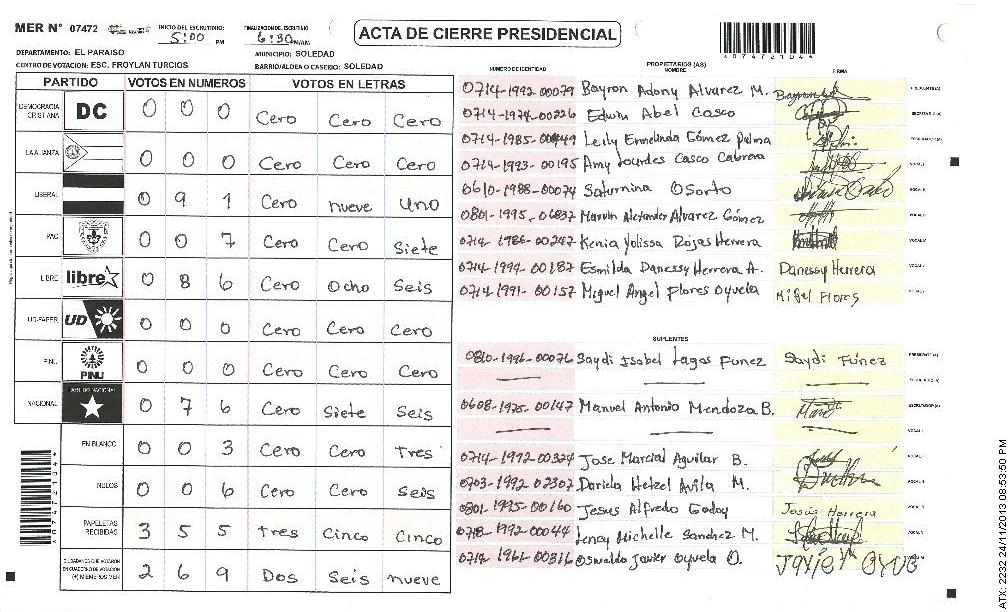 MER N° 07472
INICIO DEL ESCRUTINIO: 5:00 PM
FINALIZACION DEL ESCRUTINIO 6:30
ACTA DE CIERRE PRESIDENCIAL
*07472104*
DEPARTAMENTO: EL PARAISO
MUNICIPIO: SOLEDAD
CENTRO DE VOTACION: ESC. FROYLAN TURCIOS
BARRIO/ALDEA O CASERIO: SOLEDAD
PARTIDO VOTOS EN NUMEROS VOTOS EN LETRAS
DEMOCRACIA CRISTIANA DC 0 0 0 Cero Cero Cero
LA ALIANZA 0 0 0 Cero Cero Cero
LIBERAL 0 9 1 Cero nueve Uno
PAC 0 0 7 Cero Cero Siete
LIBRE libre 0 8 6 Cero Ocho Seis
UD-FAPER UD 0 0 0 Cero Cero Cero
PINU PINU 0 0 0 Cero Cero Cero
NACIONAL PARTIDO NACIONAL 0 7 6 Cero Siete Seis
EN BLANCO 0 0 3 Cero Cero Tres
NULOS 0 0 6 Cero Cero Seis
PAPELETAS RECIBIDAS 3 5 5 Tres Cinco Cinco
CIUDADANOS QUE VOTARON EN CUADERNO DE VOTACION (+) MIEMBROS MER 2 6 9 Dos Seis nueve
NUMERO DE IDENTIDAD PROPIETARIOS (AS) NOMBRE FIRMA
0714-1992-00079 Bayron Adony Alvarez M.
0714-1974-00226 Edwin Abel Casco
0714-1985-00449 Leily Ermelinda Gómez Palma
0714-1993-00195 Amy Lourdes Casco Cabrera
0610-1988-00074 Saturnina Osorto
0801-1995-06837 Marvin Alexander Alvarez Gómez
0714-1986-00247 Kenia Yolissa Rojas Herrera
0714-1994-00187 Esmilda Danessy Herrera A. Danessy Herrera
0714-1991-00157 Miguel Angel Flores Oyuela Migel Flores
SUPLENTES
0810-1996-00076 Saydi Isabel Lagos Funez Saydi Fúnez
0608-1975-00147 Manuel Antonio Mendoza B.
0714-1992-00324 Jose Marcial Aguilar B.
0703-1992-02307 Dariela Hetzel Avila M.
0801-1995-00160 Jesus Alfredo Godoy Jesus Herrera
0718-1992-00044 Lenny Michelle Sanchez M.
0714-1961-00316 Oswaldo Javier Oyuela O.
ATX: 2232 24/11/2013 08:53:50 PM